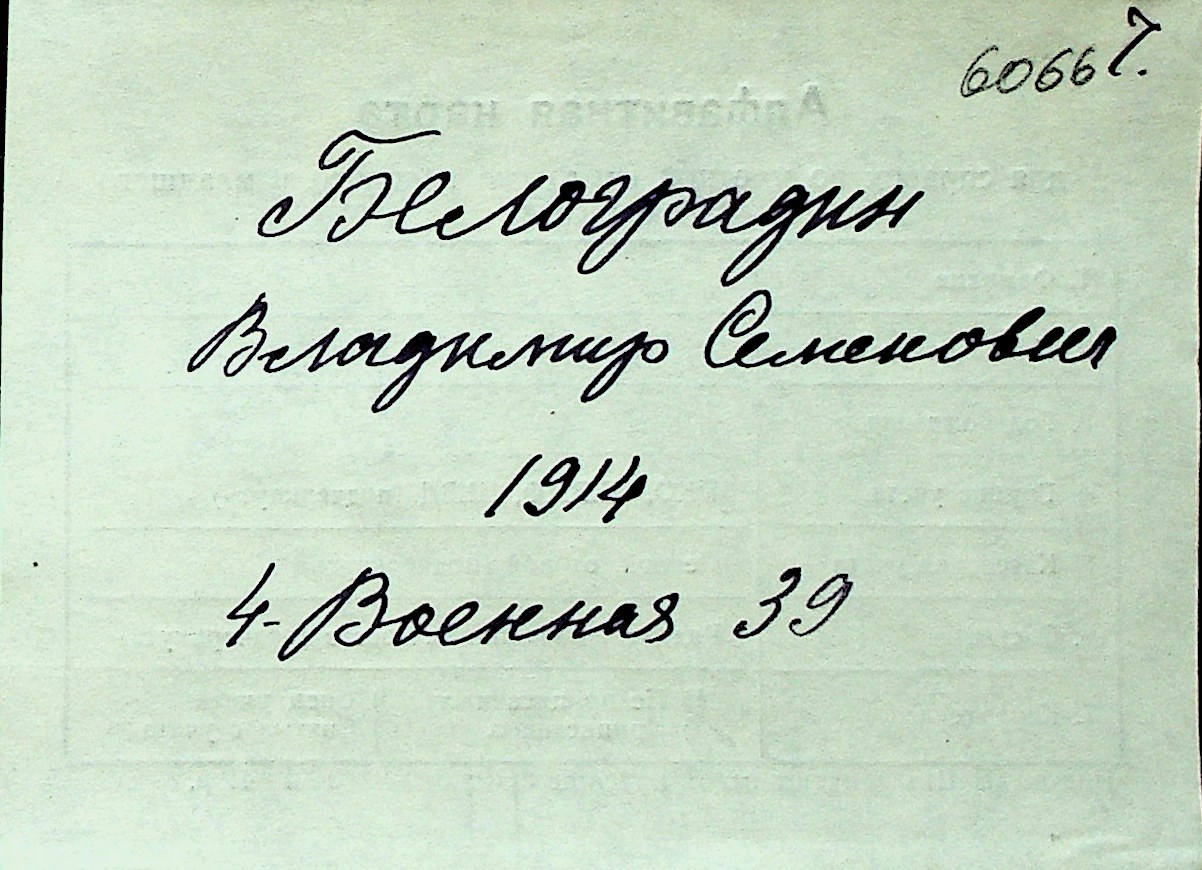 60667.
Белоградин
Владимир Семенович
1914
4-Военная 39